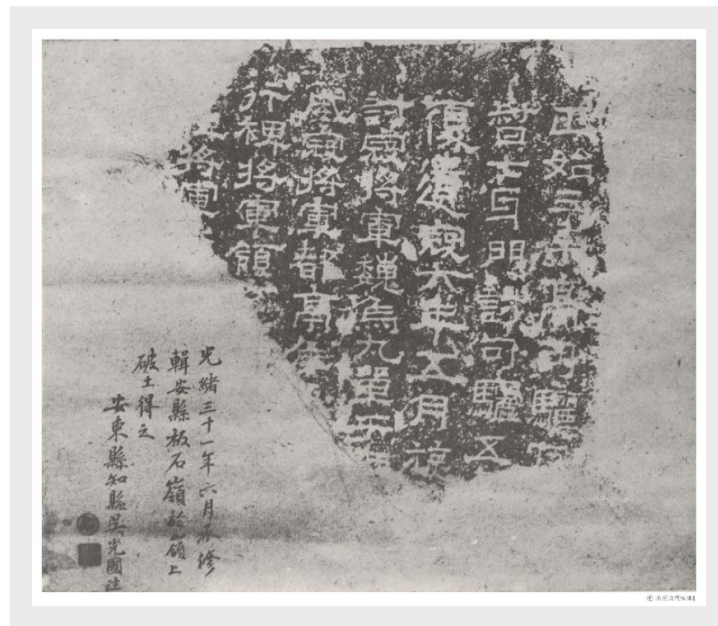 正始三年高句驪
督七牙門討句驪五
復遺寇六年五月旋
討寇將軍魏烏丸單于
威寇將軍都亭侯
行裨將軍領
將軍
光緒三十一年六月承修
輯安縣板石嶺於嶺上
破土得之
安東縣知縣吳光國注